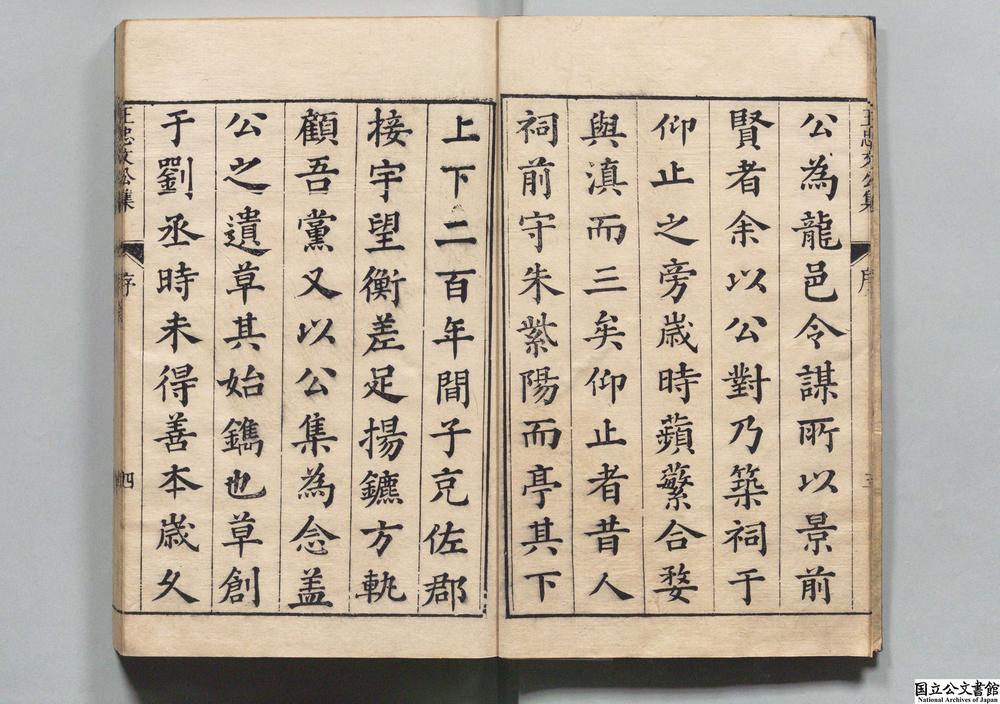 王忠文公集
序
三
公為龍邑令謀所以景前
賢者余以公對乃築祠于
仰止之旁歲時蘋蘩合婺
與滇而三矣仰止者昔人
祠前守朱紫陽而亭其下
上下二百年間子克佐郡
接宇望衡差足揚鑣方軌
顧吾黨又以公集為念盖
公之遺草其始鐫也草創
于劉丞時未得善本歲久
王忠文公集
序
四
国立公文書館
National Archives of Japan